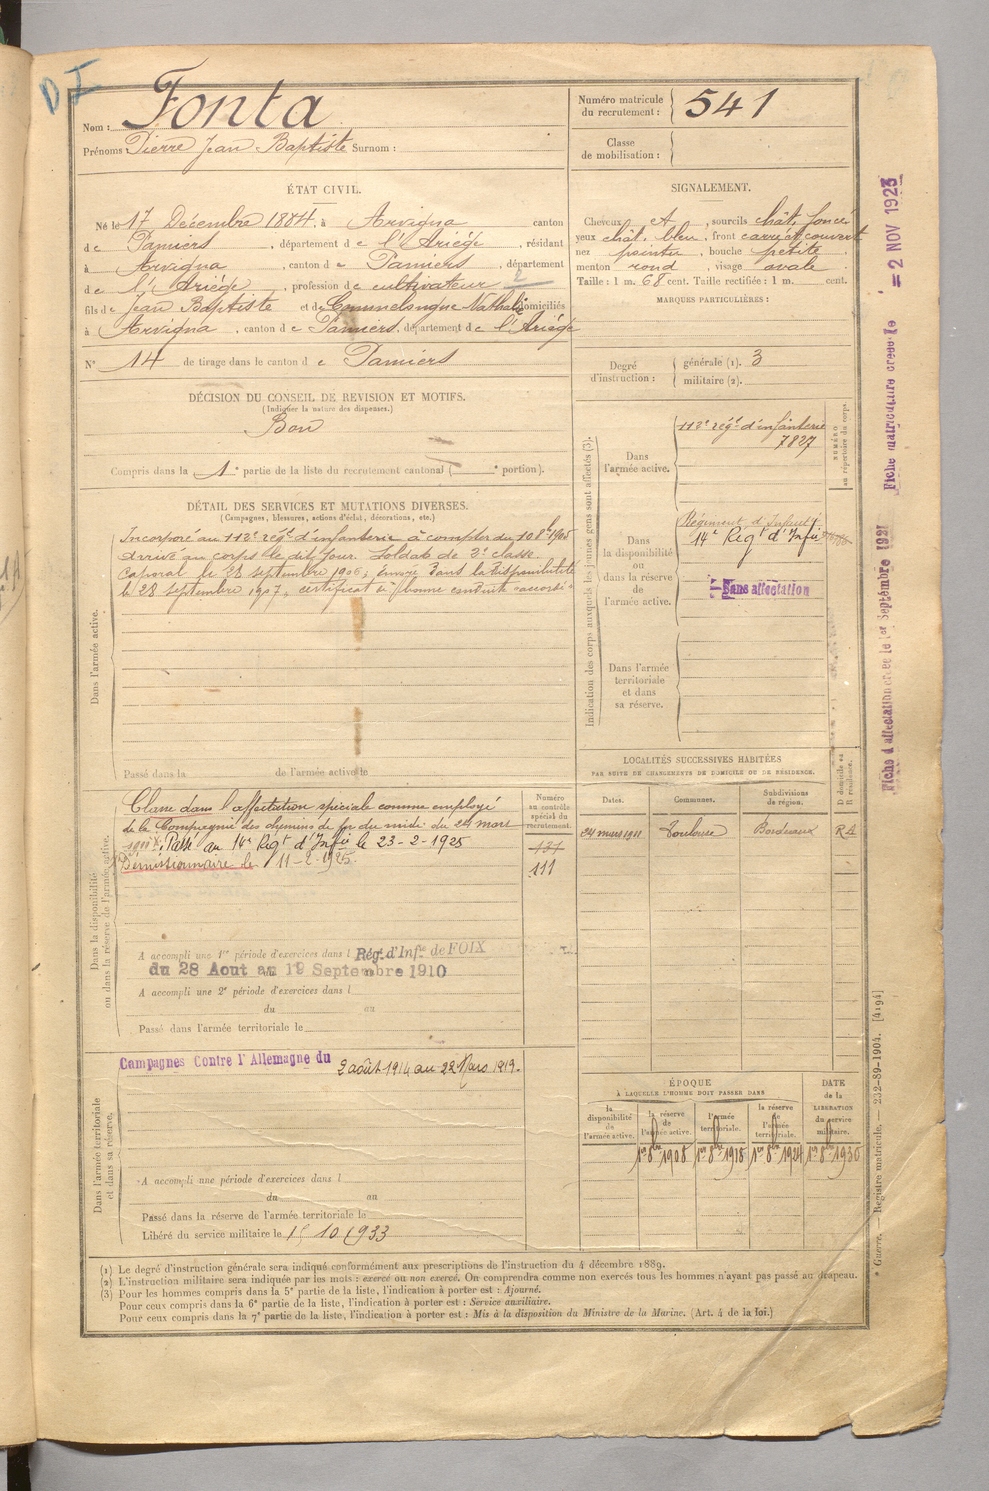 D I
Nom : Fonta
Prénoms : Pierre Jean Baptiste Surnom :
Numéro matricule du recrutement : 541
Classe de mobilisation :
ÉTAT CIVIL.
Né le 17 Décembre 1884, à Arvigna canton
de Pamiers, département de l'Ariége, résidant
à Arvigna, canton de Pamiers, département
de l'Ariége, profession de cultivateur
fils de Jean Baptiste et de Commelongue Nathalie domiciliés
à Arvigna, canton de Pamiers, département de l'Ariége
N° 14 de tirage dans le canton de Pamiers
SIGNALEMENT.
Cheveux ct, sourcils chât. foncé
yeux chât. bleu, front carré et couvert
nez pointu, bouche petite
menton rond, visage ovale
Taille : 1 m. 68 cent. Taille rectifiée : 1 m. cent.
MARQUES PARTICULIÈRES :
Degré d'instruction : générale (1). 3
militaire (2).
DÉCISION DU CONSEIL DE REVISION ET MOTIFS.
(Indiquer la nature des dispenses.)
Bon
Compris dans la 1e partie de la liste du recrutement cantonal ( e portion).
DÉTAIL DES SERVICES ET MUTATIONS DIVERSES.
(Campagnes, blessures, actions d'éclat, décorations, etc.)
Dans l'armée active.
Incorporé au 112e régt d'infanterie à compter du 10 8bre 1905
arrivé au corps le dit jour. Soldat de 2e classe.
Caporal le 28 septembre 1906; Envoyé dans la disponibilité
le 28 septembre 1907, certificat de bonne conduite accordé
Passé dans la de l'armée active le
Indication des corps auxquels les jeunes gens sont affectés (3).
NUMÉRO au répertoire du corps.
Dans l'armée active.
112e régt d'infanterie
7827
Dans la disponibilité ou dans la réserve de l'armée active.
Régiment d'Infant.
14e Régt d'Infie
Sans affectation
Dans l'armée territoriale et dans sa réserve.
LOCALITÉS SUCCESSIVES HABITÉES
PAR SUITE DE CHANGEMENTS DE DOMICILE OU DE RÉSIDENCE.
Dates. Communes. Subdivisions de région. D domicile ou R résidence.
24 mars 1911 Toulouse Bordeaux
Dans la disponibilité ou dans la réserve de l'armée active.
Numéro au contrôle spécial du recrutement.
Classé dans l'affectation spéciale comme employé
de la Compagnie des chemins de fer du midi du 24 mars
1911. Passé au 14e Régt d'Infie le 23-2-1925
Démissionnaire le 11-2-1925.
131
111
A accompli une 1re période d'exercices dans l Régt d'Infie de FOIX
du 28 Aout au 19 Septembre 1910
A accompli une 2e période d'exercices dans l
du au
Passé dans l'armée territoriale le
Dans l'armée territoriale et dans sa réserve.
Campagnes Contre l'Allemagne du 2 août 1914 au 22 Mars 1919.
A accompli une période d'exercices dans l
du au
Passé dans la réserve de l'armée territoriale le
Libéré du service militaire le 15 10 1933
ÉPOQUE
À LAQUELLE L'HOMME DOIT PASSER DANS
la disponibilité de l'armée active.
la réserve de l'armée active.
l'armée territoriale.
la réserve de l'armée territoriale.
DATE de la LIBÉRATION du service militaire.
1er 8bre 1908 1er 8bre 1918 1er 8bre 1924 1er 8bre 1930
(1) Le degré d'instruction générale sera indiqué conformément aux prescriptions de l'instruction du 4 décembre 1889.
(2) L'instruction militaire sera indiquée par les mots : exercé ou non exercé. On comprendra comme non exercés tous les hommes n'ayant pas passé au drapeau.
(3) Pour les hommes compris dans la 5e partie de la liste, l'indication à porter est : Ajourné.
Pour ceux compris dans la 6e partie de la liste, l'indication à porter est : Service auxiliaire.
Pour ceux compris dans la 7e partie de la liste, l'indication à porter est : Mis à la disposition du Ministre de la Marine. (Art. 4 de la loi.)
Fiche d'affectation créée le 1er Septembre 1921
Fiche matriculaire créée le = 2 NOV 1923
* Guerre. — Registre matricule. — 232-89-1904. [4194]